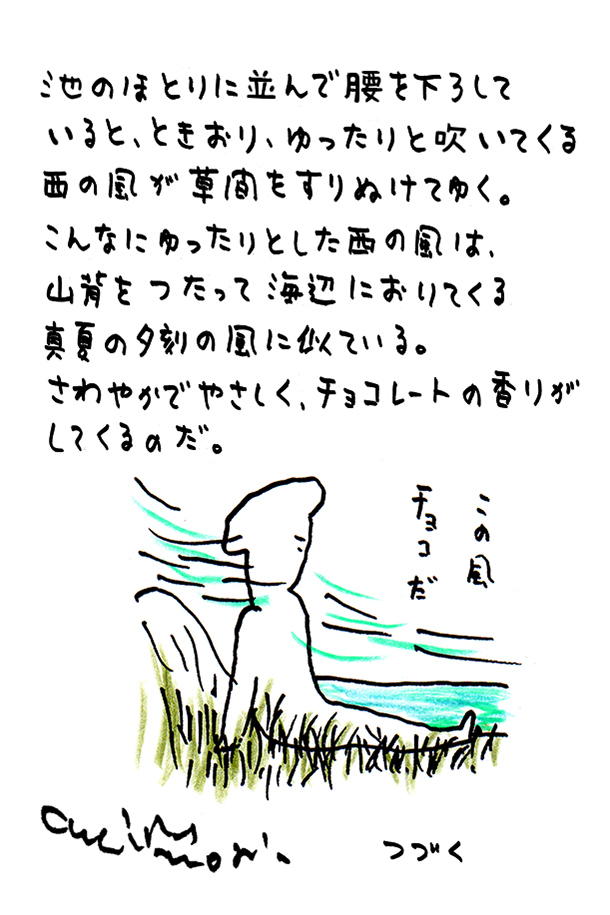 池のほとりに並んで腰を下ろして
いると、ときおり、ゆったりと吹いてくる
西の風が草間をすりぬけてゆく。
こんなにゆったりとした西の風は、
山背をつたって海辺におりてくる
真夏の夕刻の風に似ている。
さわやかでやさしく、チョコレートの香りが
してくるのだ。
この風
チョコだ
つづく